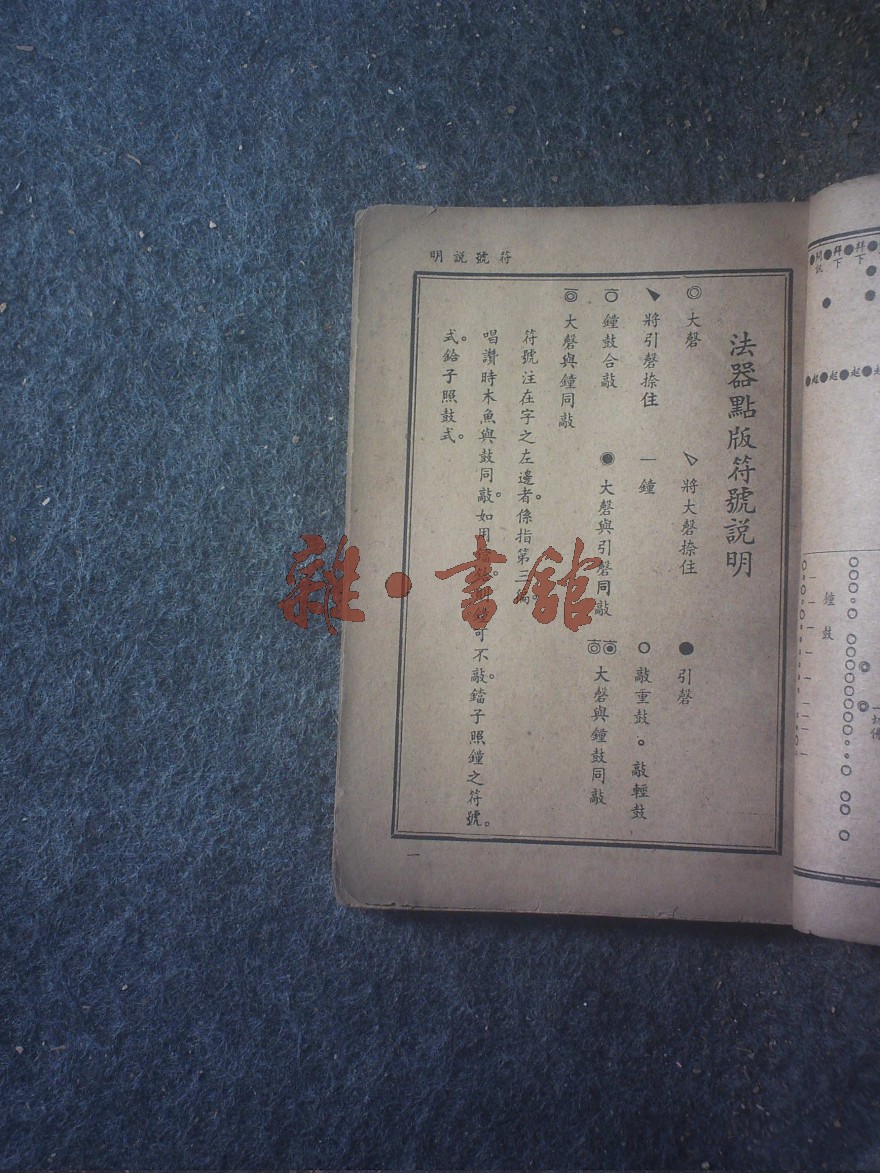 符號説明
法器點版符號説明
◎大磬
將大磬捺住
●引磬
將引磬捺住
一鐘
○敲重鼓 。敲輕鼓
鐘鼓合敲
大磬與引磬同敲
大磬與鐘鼓同敲
大磬與鐘同敲
符號注在字之左邊者。係指第三
唱讚時木魚與鼓同敲。如用 可不敲。鐺子照鐘之符號。
式。鉿子照鼓式。
一
拜下
拜下
起●起●起●起
鐘鼓
雜·書館